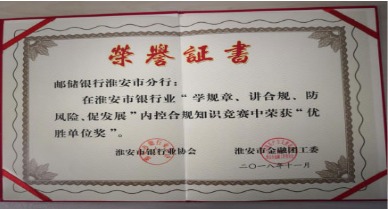 榮譽証書
邮储银行淮安市分行：
在淮安市银行业“学规章、讲合规、防
风险、促发展”内控合规知识竞赛中荣获“优
胜单位奖”。
淮安市银行业协会 淮安市金融团工委
二〇一八年十一月